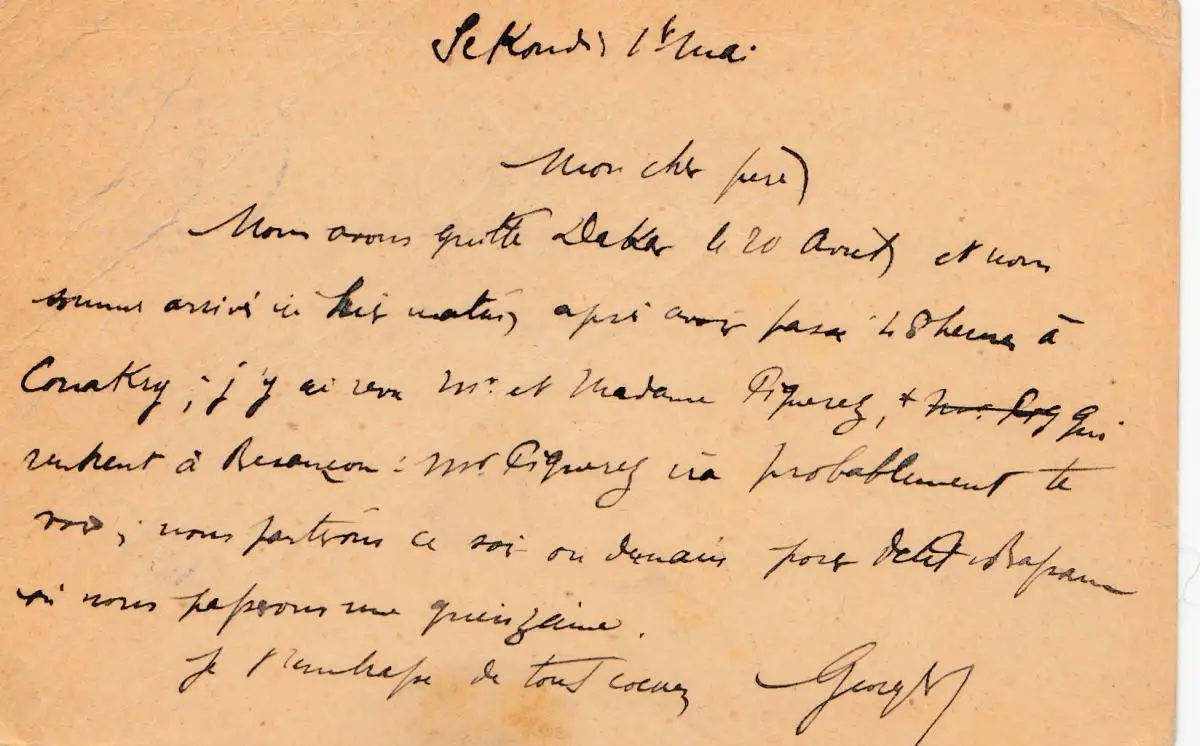 Sekondi 1er Mai
Mon cher père,
Nous avons quitté Dakar le 20 Avril, et nous
sommes arrivés ici hier matin, après avoir passé 48 heures à
Conakry ; j'y ai revu Mr. et Madame Piquerez, qui
rentrent à Besançon : Mr. Piquerez ira probablement te
voir ; nous partirons ce soir ou demain pour
où nous passerons une quinzaine.
Je t'embrasse de tout coeur,
Georges